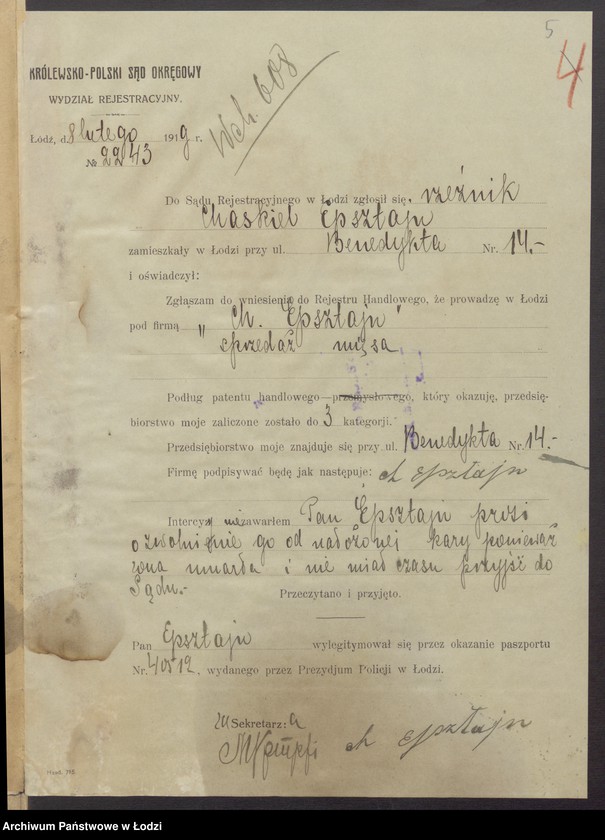 5
4
KRÓLEWSKO-POLSKI SĄD OKRĘGOWY
WYDZIAŁ REJESTRACYJNY.
Wch. 608
Łódź, d. 8 lutego 1919 r.
№ 2243
Do Sądu Rejestracyjnego w Łodzi zgłosił się, rzeźnik
Chaskiel Epsztajn
zamieszkały w Łodzi przy ul. Benedykta Nr. 14.-
i oświadczył:
Zgłaszam do wniesienia do Rejestru Handlowego, że prowadzę w Łodzi
pod firmą „Ch. Epsztajn"
sprzedaż mięsa
Podług patentu handlowego przemysłowego, który okazuję, przedsię-
biorstwo moje zaliczone zostało do 3 kategorji.
Przedsiębiorstwo moje znajduje się przy ul. Benedykta Nr. 14.-
Firmę podpisywać będę jak następuje: ch Epsztajn
Intercyz nie zawarłem Pan Epsztajn prosi
o zwolnienie go od nałożonej kary ponieważ
żona umarła i nie miał czasu przyjść do
Sądu.-
Przeczytano i przyjęto.
Pan Epsztajn wylegitymował się przez okazanie paszportu
Nr. 40512, wydanego przez Prezydjum Policji w Łodzi.
Sekretarz:
ch Epsztajn
Archiwum Państwowe w Łodzi